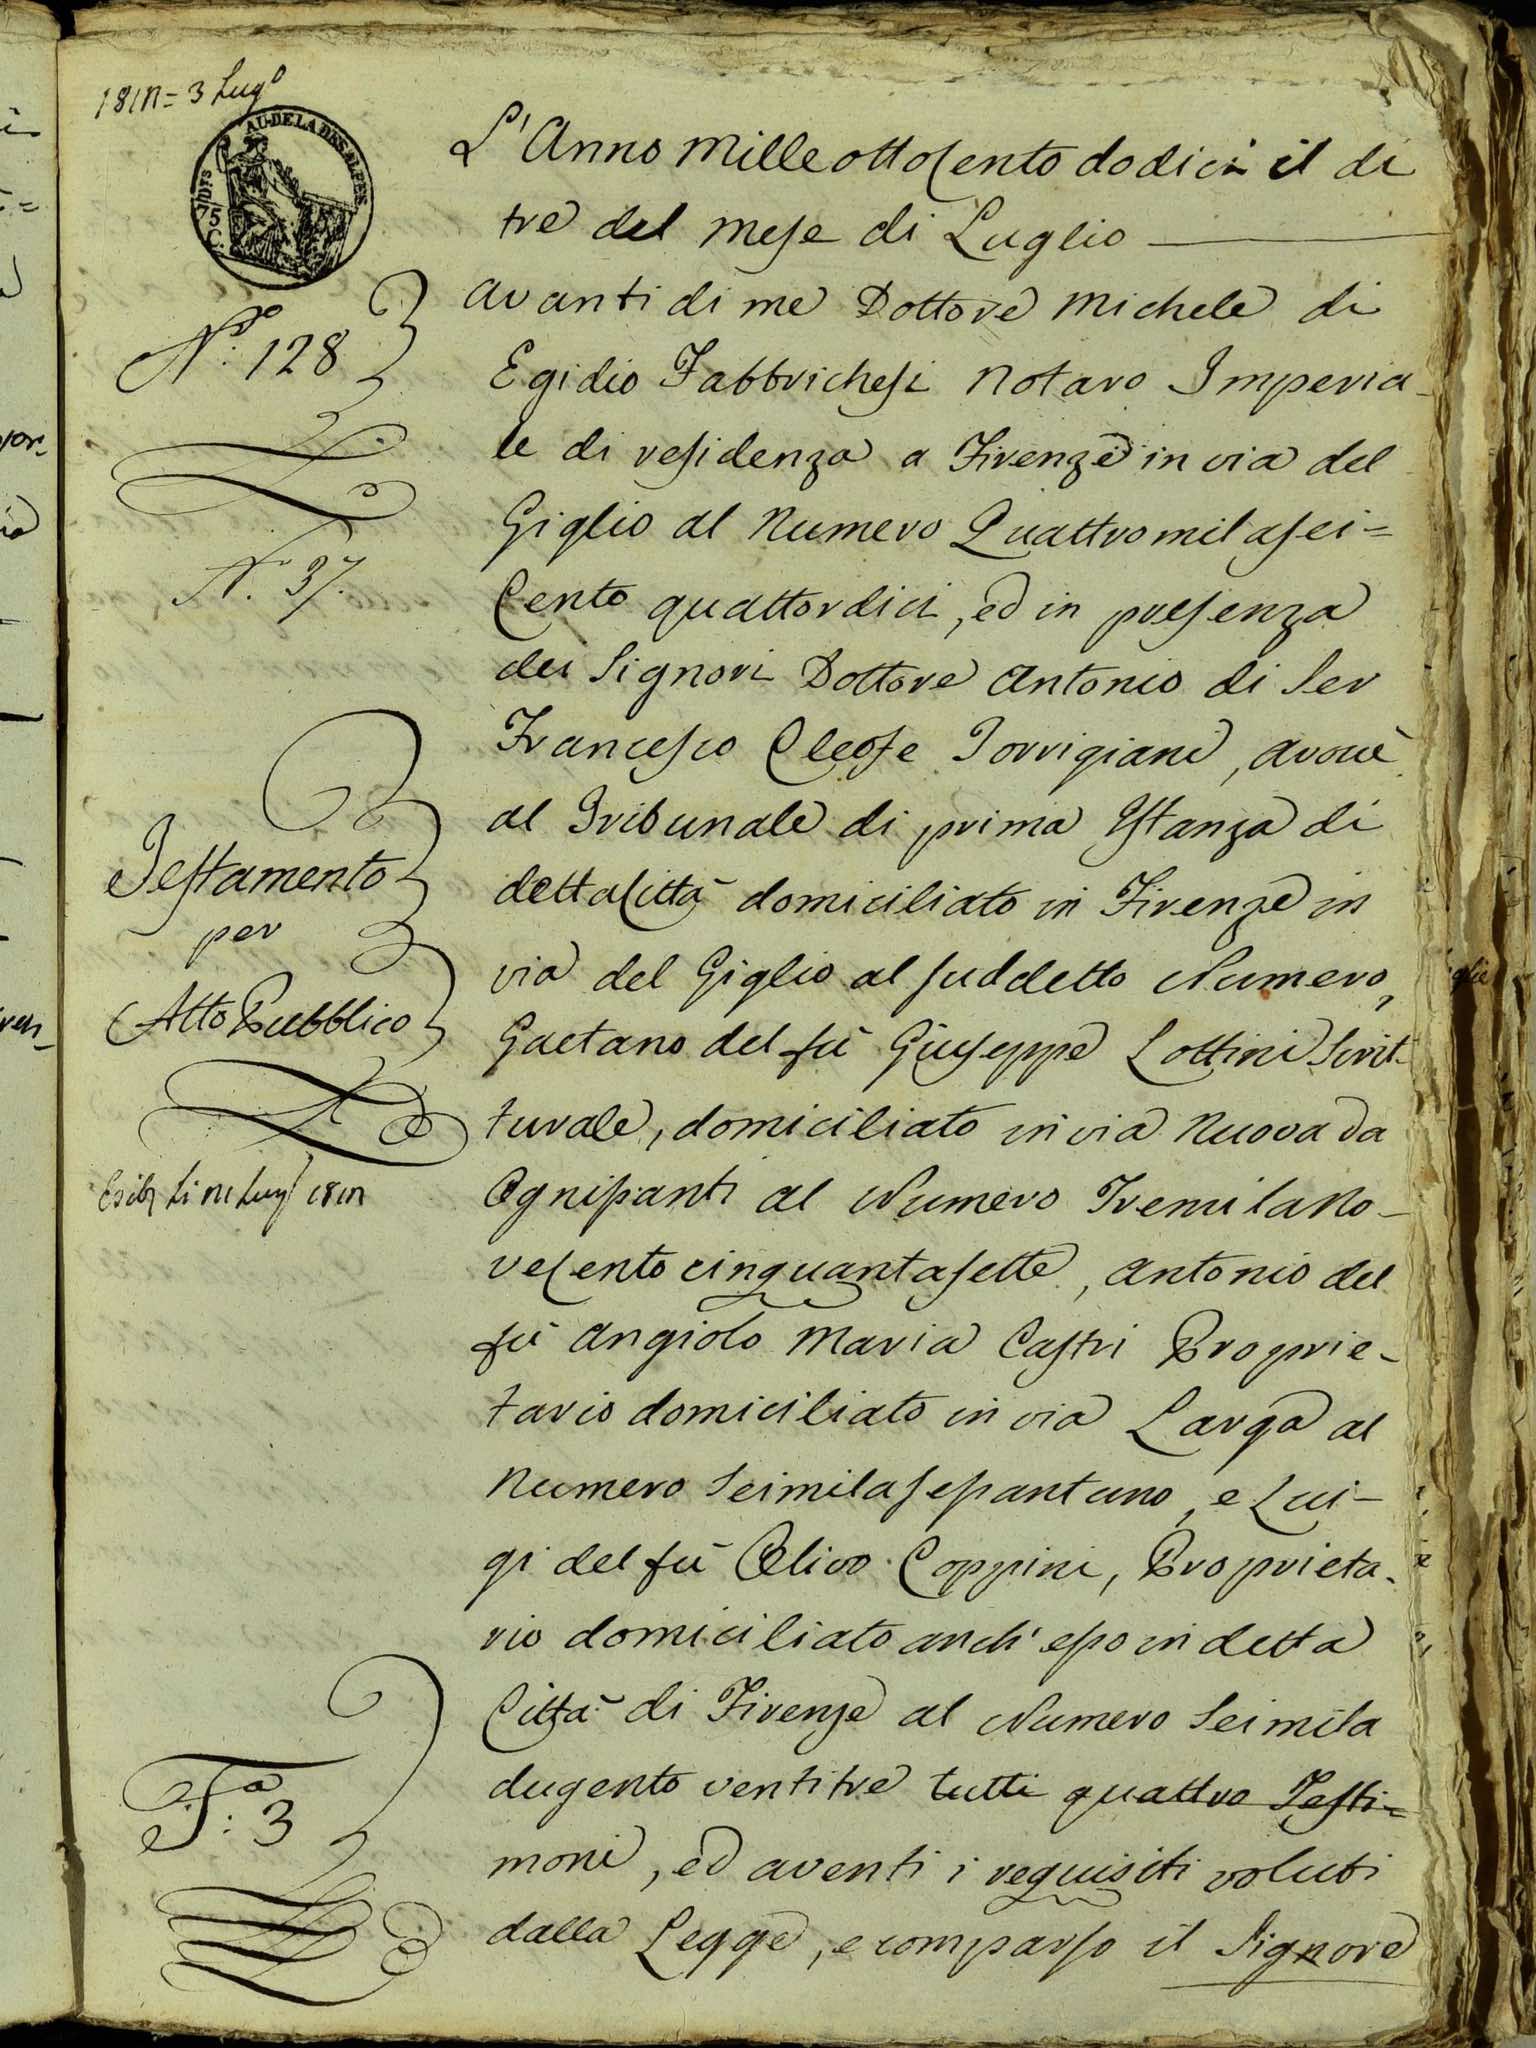 1812 = 3 Lug.º
AU-DELA DES ALPES
DTS
75
C.
N.º 128
N.º 37.
Testamento
per
Atto Pubblico
1812
T.ª 3
L'Anno Mille ottocento dodici il di
tre del Mese di Luglio
avanti di me Dottore Michele di
Egidio Fabbrichesi Notaro Imperia-
le di residenza a Firenze in via del
Giglio al Numero Quattromilasei=
Cento quattordici, ed in presenza
dei Signori Dottore Antonio di Ser
Francesco Cleofe Torrigiani, avouè
al Tribunale di prima Istanza di
detta Città domiciliato in Firenze in
via del Giglio al suddetto Numero,
Gaetano del fù Giuseppe Lottini Scrit-
turale, domiciliato in via Nuova da
Ognissanti al Numero Tremilano-
vecento cinquantasette, Antonio del
fù Angiolo Maria Castri Proprie-
tario domiciliato in via Larga al
Numero Seimilasessantuno, e Lui-
gi del fù Olivo Coppini, Proprieta-
rio domiciliato anch' esso in detta
Città di Firenze al Numero Seimila
dugento ventitre tutti quattro Testi=
moni, ed aventi i requisiti voluti
dalla Legge, e comparso il Signore